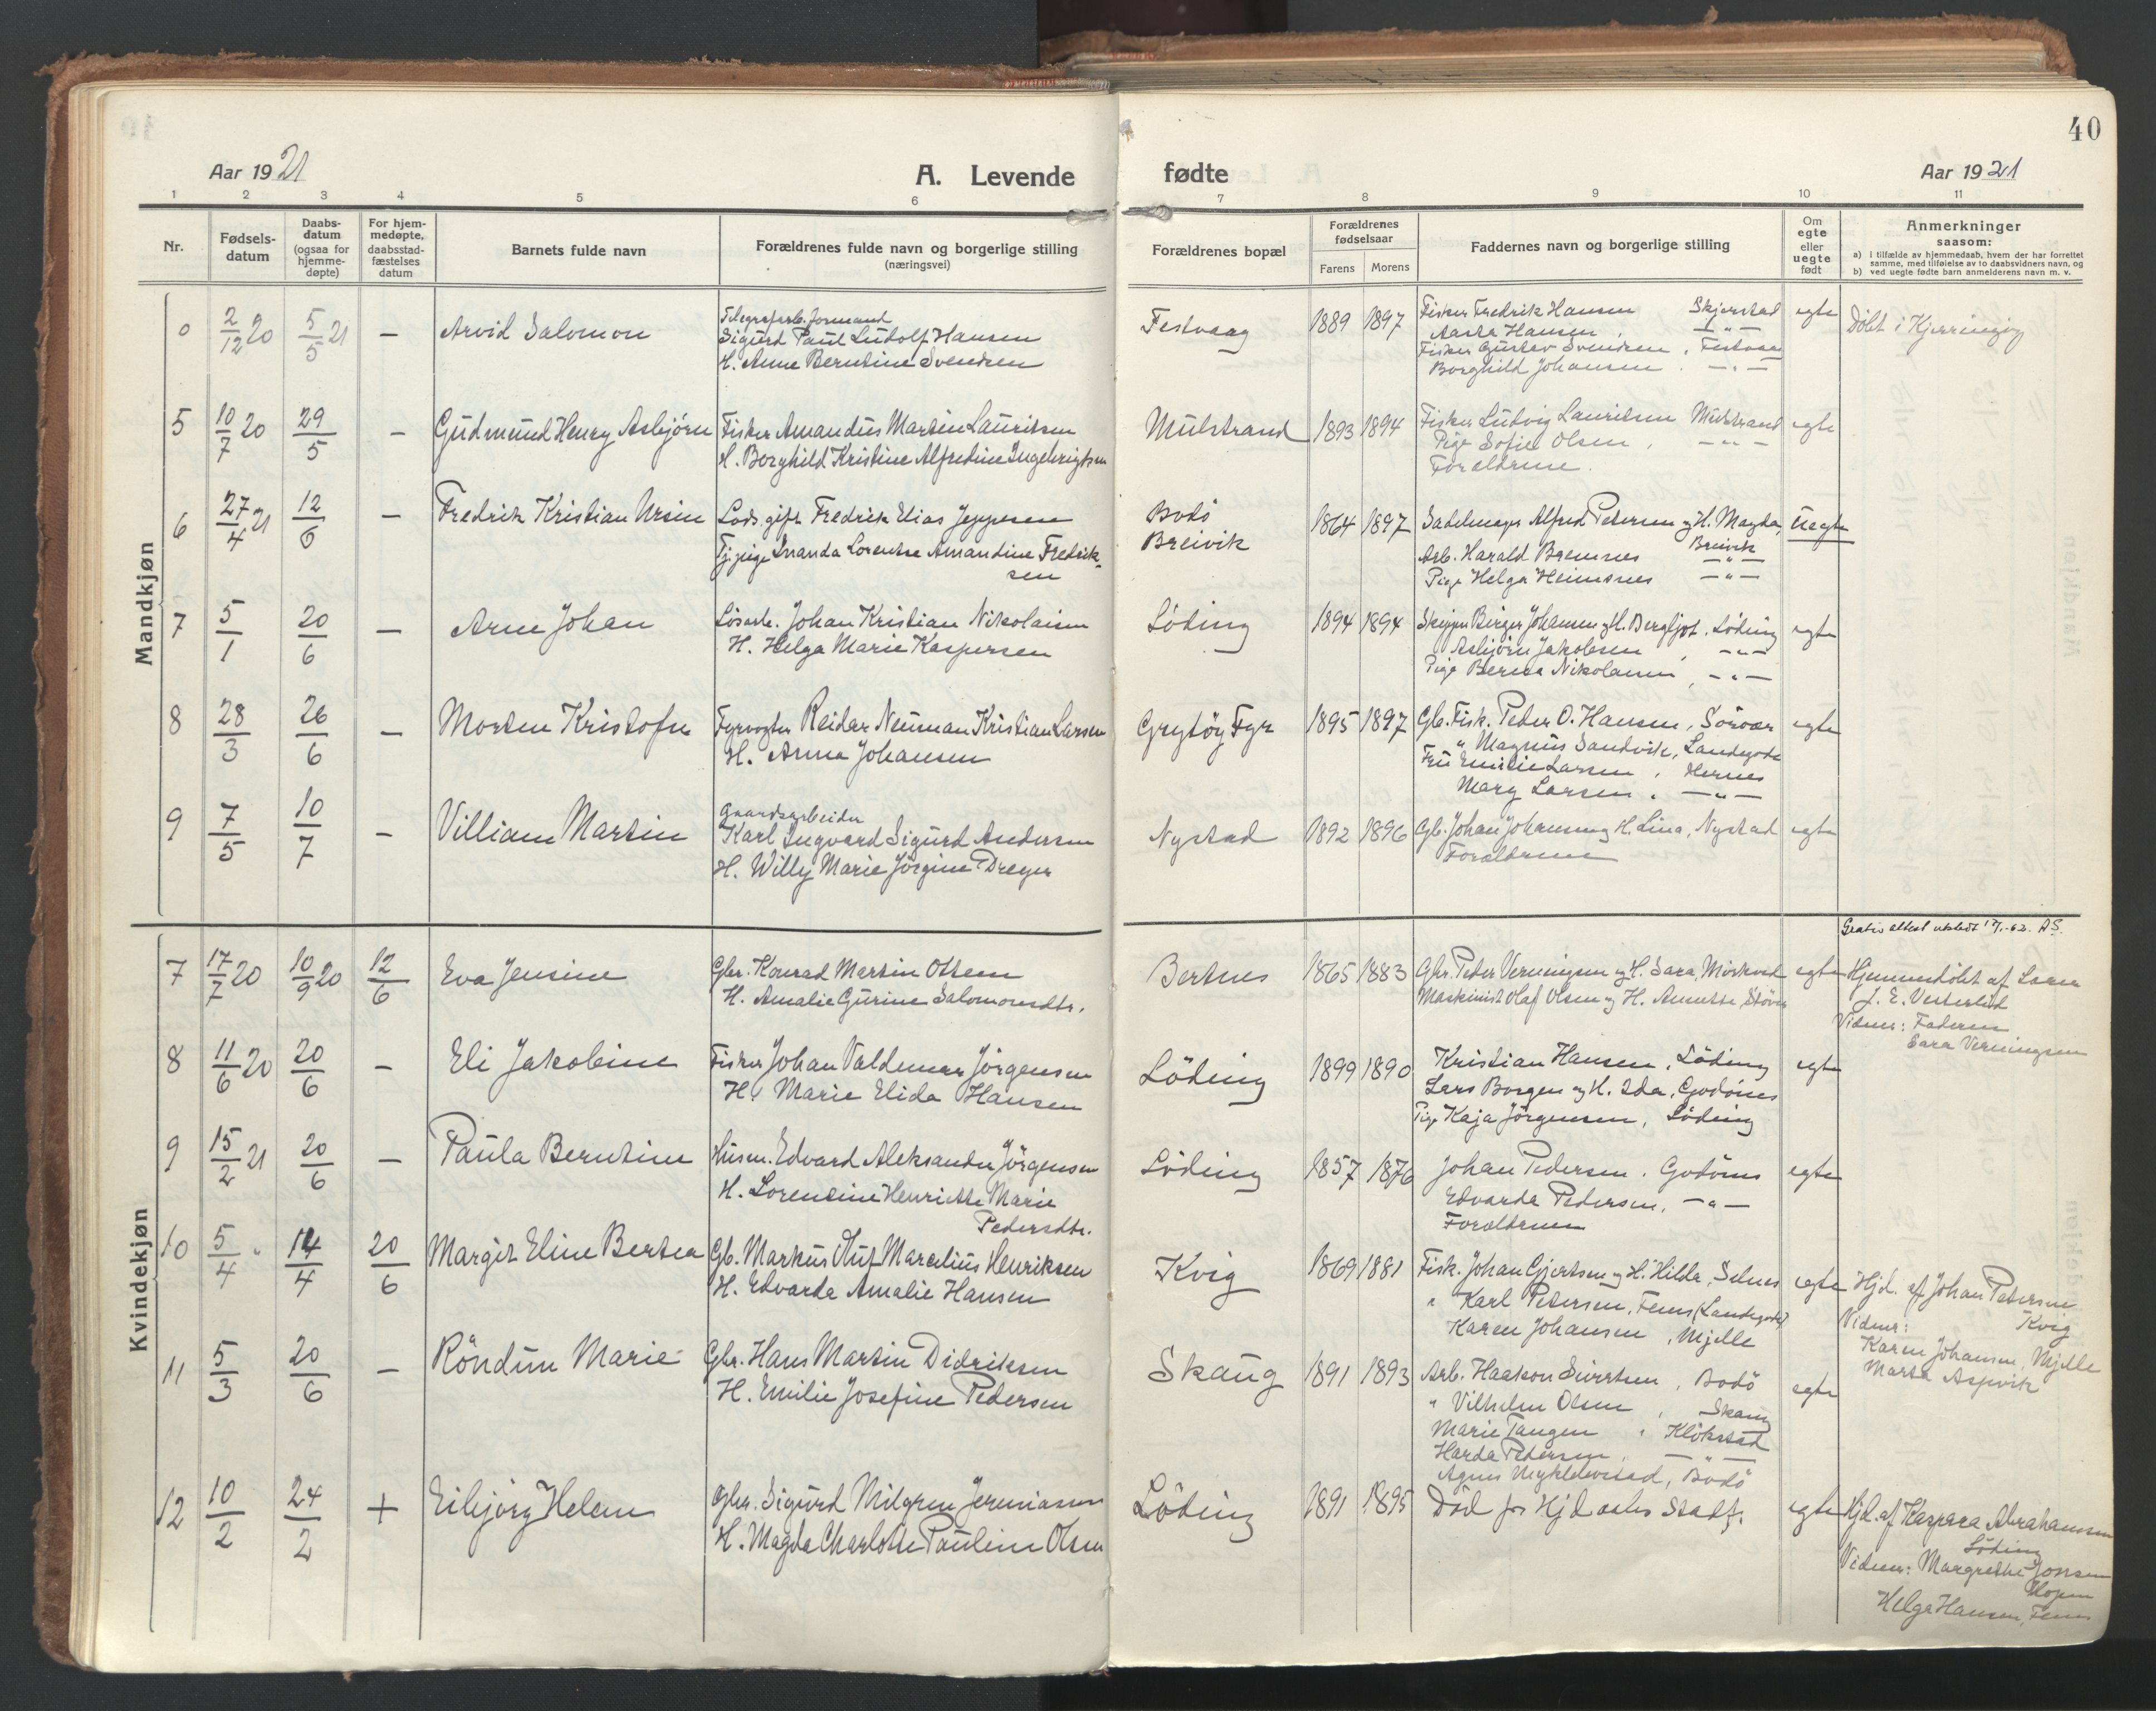 40
Aar 1921
A. Levende fødte
Aar 1921
1 2 3 4 5 6 7 8 9 10 11
Nr.
Fødsels-
datum
Daabs-
datum
(ogsaa for
hjemme-
døpte)
For hjem-
medøpte,
daabsstad-
fæstelses
datum
Barnets fulde navn
Forældrenes fulde navn og borgerlige stilling
(næringsvei)
Forældrenes bopæl
Forældrenes
fødselsaar
Farens Morens
Faddernes navn og borgerlige stilling
Om
egte
eller
uegte
født
Anmerkninger
saasom:
a) i tilfælde av hjemmedaab, hvem der har forrettet
samme, med tilføielse av to daabsvidners navn, og
b) ved uegte fødte barn anmelderens navn m. v.
Mandkjøn
0 2/12 20 5/5 21 — Arvid Salomon
Telegrafarb. formand
Sigurd Paul Ludolf Hansen
H. Anne Berntine Svendsen
Festvaag 1889 1897
Fisker Fredrik Hansen Skjerstad
Aasta Hansen, — " —
Fisker Gustav Svendsen, Festvaag
Borghild Johansen. — " —
egte
Döbt i Kjerringöy
5 10/7 20 29/5 — Gudmund Henry Asbjörn
Fisker Amandus Martin Lauritsen
H. Borghild Kristine Alfredine Ingebrigtsen
Mulstrand 1893 1894
Fisker Ludvig Lauritsen Mulstrand
Pige Sofie Olsen, — " —
Forældrene.
egte
6 27/4 21 12/6 — Fredrik Kristian Ursin
Lods. gift Fredrik Elias Jeppesen
Tj.pige Inanda Lorentse Amandine Fredrik-
sen
Bodö
Breivik
1864 1897
Sadelmager Alfred Petersen og H. Magda,
Breivik
Arb. Harald Bremnes — " —
Pige Helga Heimsnes — " —
uegte
7 5/1 20/6 — Arne Johan
Lösarb. Johan Kristian Nikolaisen
H. Helga Marie Kaspersen
Löding 1894 1894
Skipper Birger Johansen og H. Bergljot, Löding
Asbjörn Jakobsen, — " —
Pige Berna Nikolaisen, — " —
egte
8 28/3 26/6 — Morten Kristofer
Fyrvogter Reidar Neuman Kristian Larsen
H. Anna Johansen
Grytöy Fyr 1895 1897
Gb. Fisk. Peder O. Hansen, Sörvær
" Magnus Sandvik, Landegode
Fru Emilie Larsen, Hernes
Mary Larsen. — " —
egte
9 7/5 10/7 — Villiam Martin
Gaardsarbeider
Karl Ingvard Sigurd Andersen
H. Willy Marie Jörgine Dreyer
Nystad 1892 1896
Gb. Johan Johansen og H. Lina, Nystad
Forældrene
egte
Kvindekjøn
Gratis attest utstedt 12/1-62. AS.
7 17/7 20 10/9 20 12/6 Eva Jensine
Gbr. Konrad Martin Olsen
H. Amalie Gurine Salomonsdtr.
Bertnes 1865 1883
Gbr. Peder Verningsen og H. Sara, Mörkved
Maskinist Olaf Olsen og H. Annette, Stöver
egte
Hjemmedöbt af Lærer
J. E. Vesterlid
Vidner: Faderen
Sara Verningsen
8 11/6 20 20/6 — Eli Jakobine
Fisker Johan Valdemar Jörgensen
H. Marie Elida Hansen
Löding 1899 1890
Kristian Hansen, Löding
Lars Borgen og H. Ida, Godönes
Pige Kaja Jörgensen, Löding
egte
9 15/2 21 20/6 — Paula Berntine
Husm. Edvard Aleksander Jörgensen
H. Lorentine Henriette Marie
Pedersdtr.
Löding 1857 1876
Johan Pedersen. Godönes
Edvarda Pedersen, — " —
Forældrene
egte
10 5/4 " 14/4 20/6 Margit Eline Bertea
Gb. Markus Rist Marcelius Henriksen
H. Edvarda Amalie Hansen
Kvig 1869 1881
Fisk. Johan Gjertsen og H. Hilda, Selnes
" Karl Petersen, Fenes (Landegode)
Karen Johansen, Mjelle
egte
Hjd. af Johan Petersen
Kvig
Vidner:
Karen Johansen, Mjelle
Marta Aspvik
11 5/3 20/6 — Röndun Marie
Gbr. Hans Martin Didriksen
H. Emilie Josefine Pedersen
Skaug 1891 1893
Arb. Haakon Sivertsen, Bodö
" Vilhelm Olsen, Skaug
Marie Tangen, Klökstad
Harda Pedersen, — " —
Agnes Myklebostad, Bodö
egte
12 10/2 24/2 + Eibjörg Helene
Gbr. Sigurd Milgren Jeremiassen
H. Magda Charlotte Pauline Olsen
Löding 1891 1895
Död för Hjd aabs Stadf.
egte
Hjd. af Kaspara Abrahamsen
Löding
Vidner: Margrethe Jonsen
Hopen
Helga Hansen, Fenes